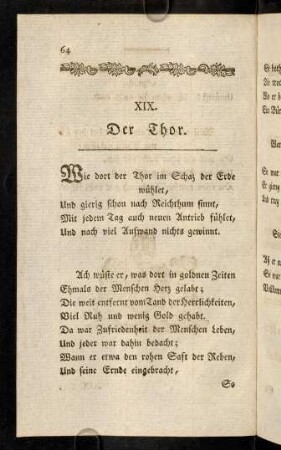 64
XIX.
Der Thor.
Wie dort der Thor im Schaz der Erde
wühlet,
Und gierig schon nach Reichthum sinnt,
Mit jedem Tag auch neuen Antrieb fühlet,
Und nach viel Aufwand nichts gewinnt.
Ach wüste er, was dort in goldnen Zeiten
Ehmals der Menschen Herz gelabt;
Die weit entfernt vom Tand der Herrlichkeiten,
Viel Ruh und wenig Gold gehabt.
Da war Zufriedenheit der Menschen Leben,
Und jeder war dahin bedacht;
Wann er etwa den rohen Saft der Reben,
Und seine Ernde eingebracht,
So